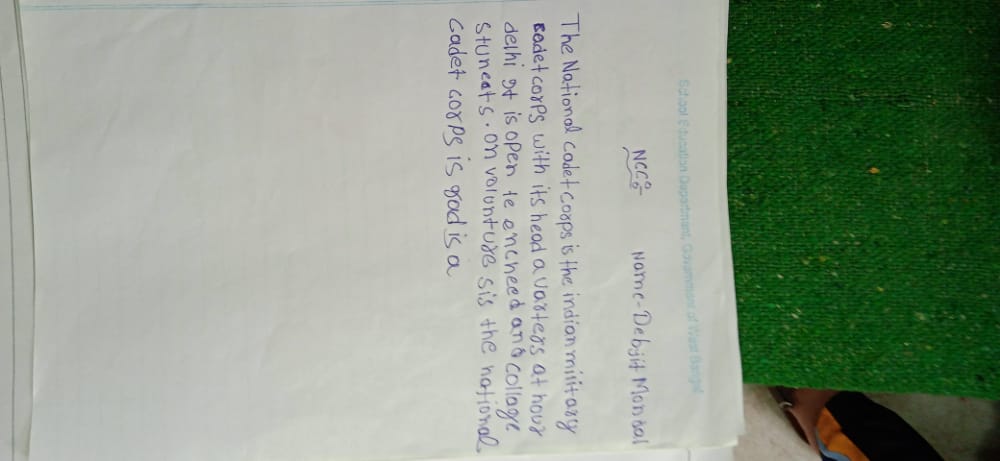 School Education Department, Government of West Bengal
NCC:- Name-Debjit Mondal
The National Cadet Corps is the indian military
cadet corps with its head avarters at hour
delhi It is open te encheed and collage
stuneats. on volunture sis the national
cadet corps is gad is a